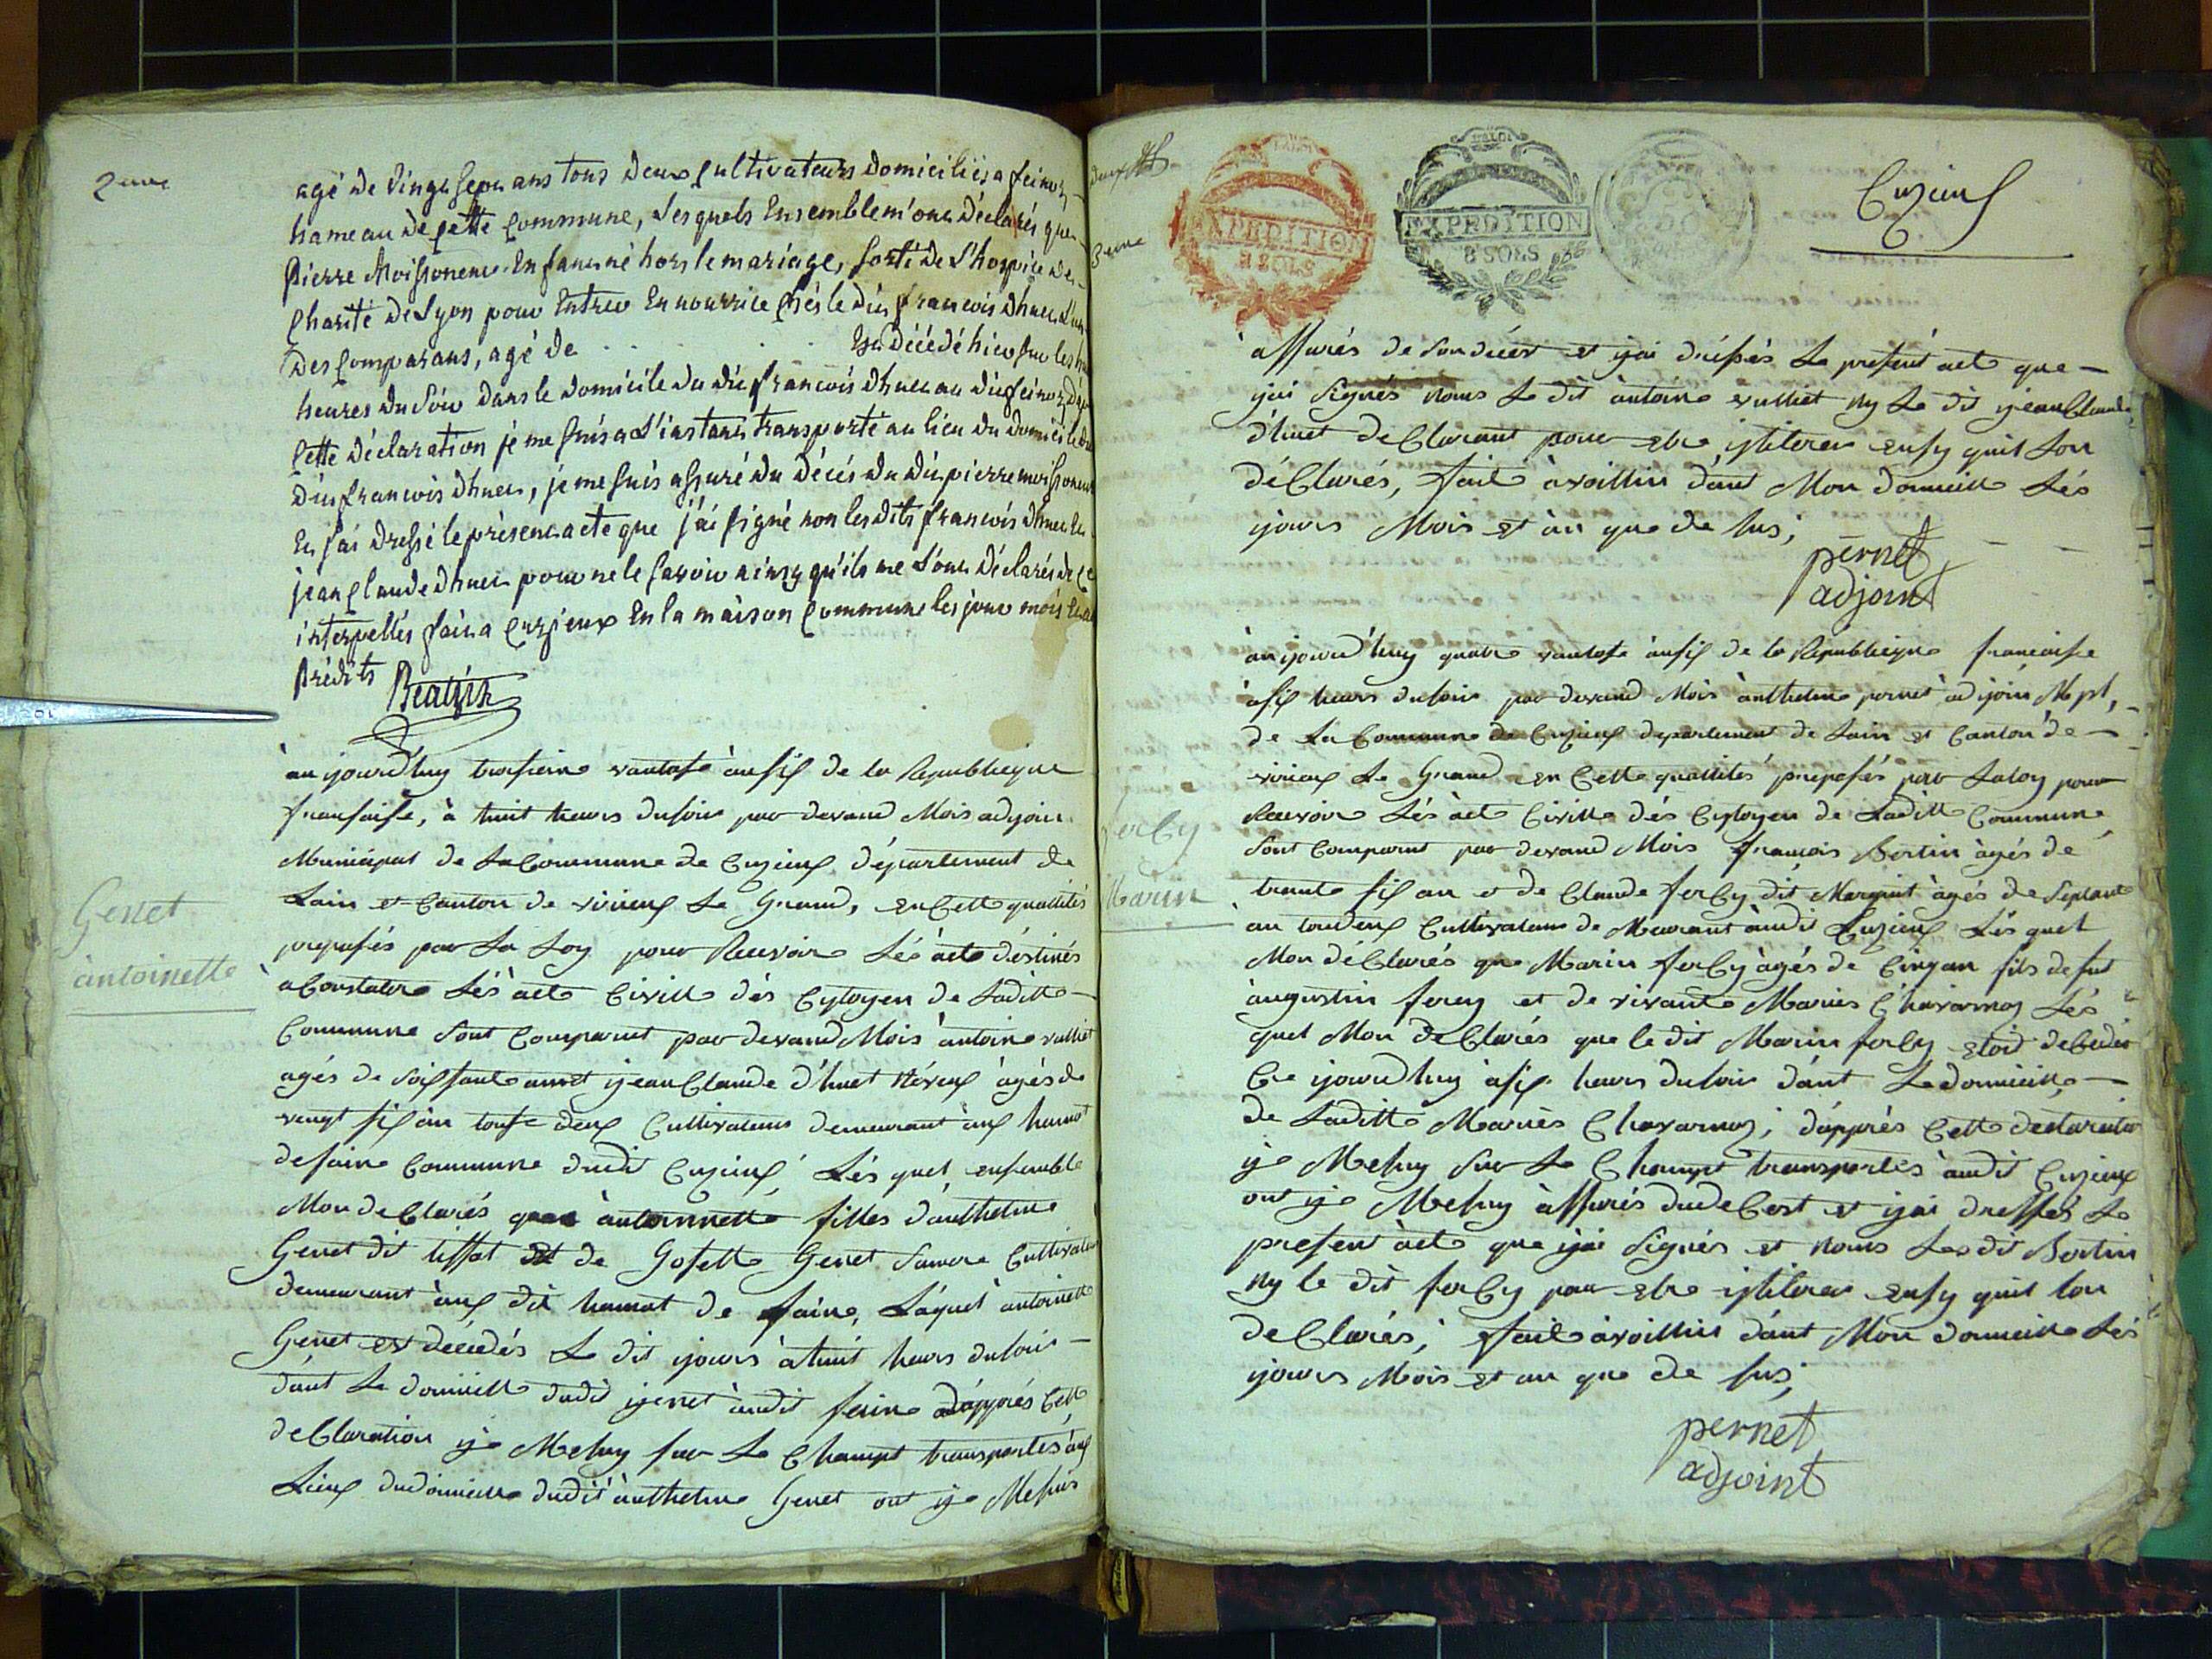 2eme
agé de vingt sept ans tous deux cultivateurs domiciliés a feinoz
hameau de cette commune, Lesquels Ensemble m'ont déclarés que
Pierre Moissoneur Enfant né hors le mariage, sorti de L'hospice de
Charité de Lyon pour Entrer En nourrice chés le dit francois dhuer L'un
des comparans, agé de . . . . . Est décédé hier sur les huit
heures du soir dans le domicile du dit francois dhuer au dit feinoz
Cette déclaration je me suis a L'instant transporté au lieu du domicile du
dit francois dhuer, je me suis assuré du décés du dit pierre moissoneur
En j'ai dressé le présent acte que j'ai signé non les dits francois dhuer
jean claude dhuer pour ne le savoir ainsy qu'ils me L'ont déclarés de ce
interpellés fait a Cuzieux En la maison Commune les jour mois Et an
Prédits
Beatrix
Genet
antoinette
àu ijourd'huy troisieme vantose ànsix de la Republieque
fransaise, à huit heurs dusoir par devand Mois adjoin
Municipat de La Commune de Cuzieux département de
Lain et Canton de virieux Le Grand, en Cette quallités
preposés par La Loy pour Recevoir Lés àcte déstinés
à Constater Lés àcte Civille dés Cytoyen de Laditte
Commune Sont Comparut par devand Mois àntoine vulliet
agés de Soissante annet ijean Claude d'huet Néveux àgés de
vengt six àn touse deux Cultivateurs demeurant àux hamot
defaine Commune dudit Cuzieux Lés quel ensemble
Mon de Clarés que àntoinnette filles dànthelme
Genet dit tissot et de Gosette Genet Cultivateur
demeurant àux dit hamot de faine, Làquel àntoinette
Genet est decédés Le dit ijours àhuit heurs dusoir
dànt Le domicille dudit ijenet àudit feine d'apprés Cette
deClaration ije Mesuy sur Le Champt transportés àux
Lieux dudomicille dudit ànthelme Genet out ije Mesuis
3eme
EXPEDITION
8 SOLS
EXPEDITION
8 SOLS
Cuzieux
àssurés de son décés et ijai dréssés Le présent acte que
ijai Signés nous Le dit àntoine vulliet ny Le dit ijean Claude
d'huet deClarant pour etre ijlliterer ensy quil Lon
déClarés, fait àvoillin dànt Mon domicille Lés
ijours Mois et àn que de sus;
pernet
adjoint
ferly
Marin
àu ijourd'huy quatre vantose ànsix de la Republieque francoise
àsix heurs dusoir par devand Mois ànthelme pernet àdijoin Mpl,
de La Commune de Cuzieux departement de Lain et Canton de
virieux Le Grand en Cette quallités preposés par La Loy pour
Recevoir Lés àcte Civille dés Cytoyen de Laditte Commune,
Sont Comparut par devand Mois francois Bertin àgés de
trante six an et de Claude ferly dit Marquit àgés de Septante
àn toudeux Cultivateurs de Meurant àudit Cuzieux Lés quel
Mon déClarés que Marin ferly àgés de Cinq an fils de fut
àugustin ferly et de vivante Maries Chavarnoz Lés
quel Mon de Clarés que le dit Marin ferly etoit de Cedés
Ce ijourdhuy àsix heurs dusoir dànt Le domicille
de Laditte Mariès Chavarnoz, d'apprés Cette declaration
ije Mesuy sur Le Champt transportés àudit Cuzieux
out ije Mesuy àssurés dude Cest et ijai dressés Le
present àcte que ijai Signés et nous Le dit Bertin
ny le dit ferly pour etre ijlliterer ensy quil lon
de Clarés, fait àvoillin dànt Mon domicille Lés
ijours Mois et an que de sus,
pernet
adjoint